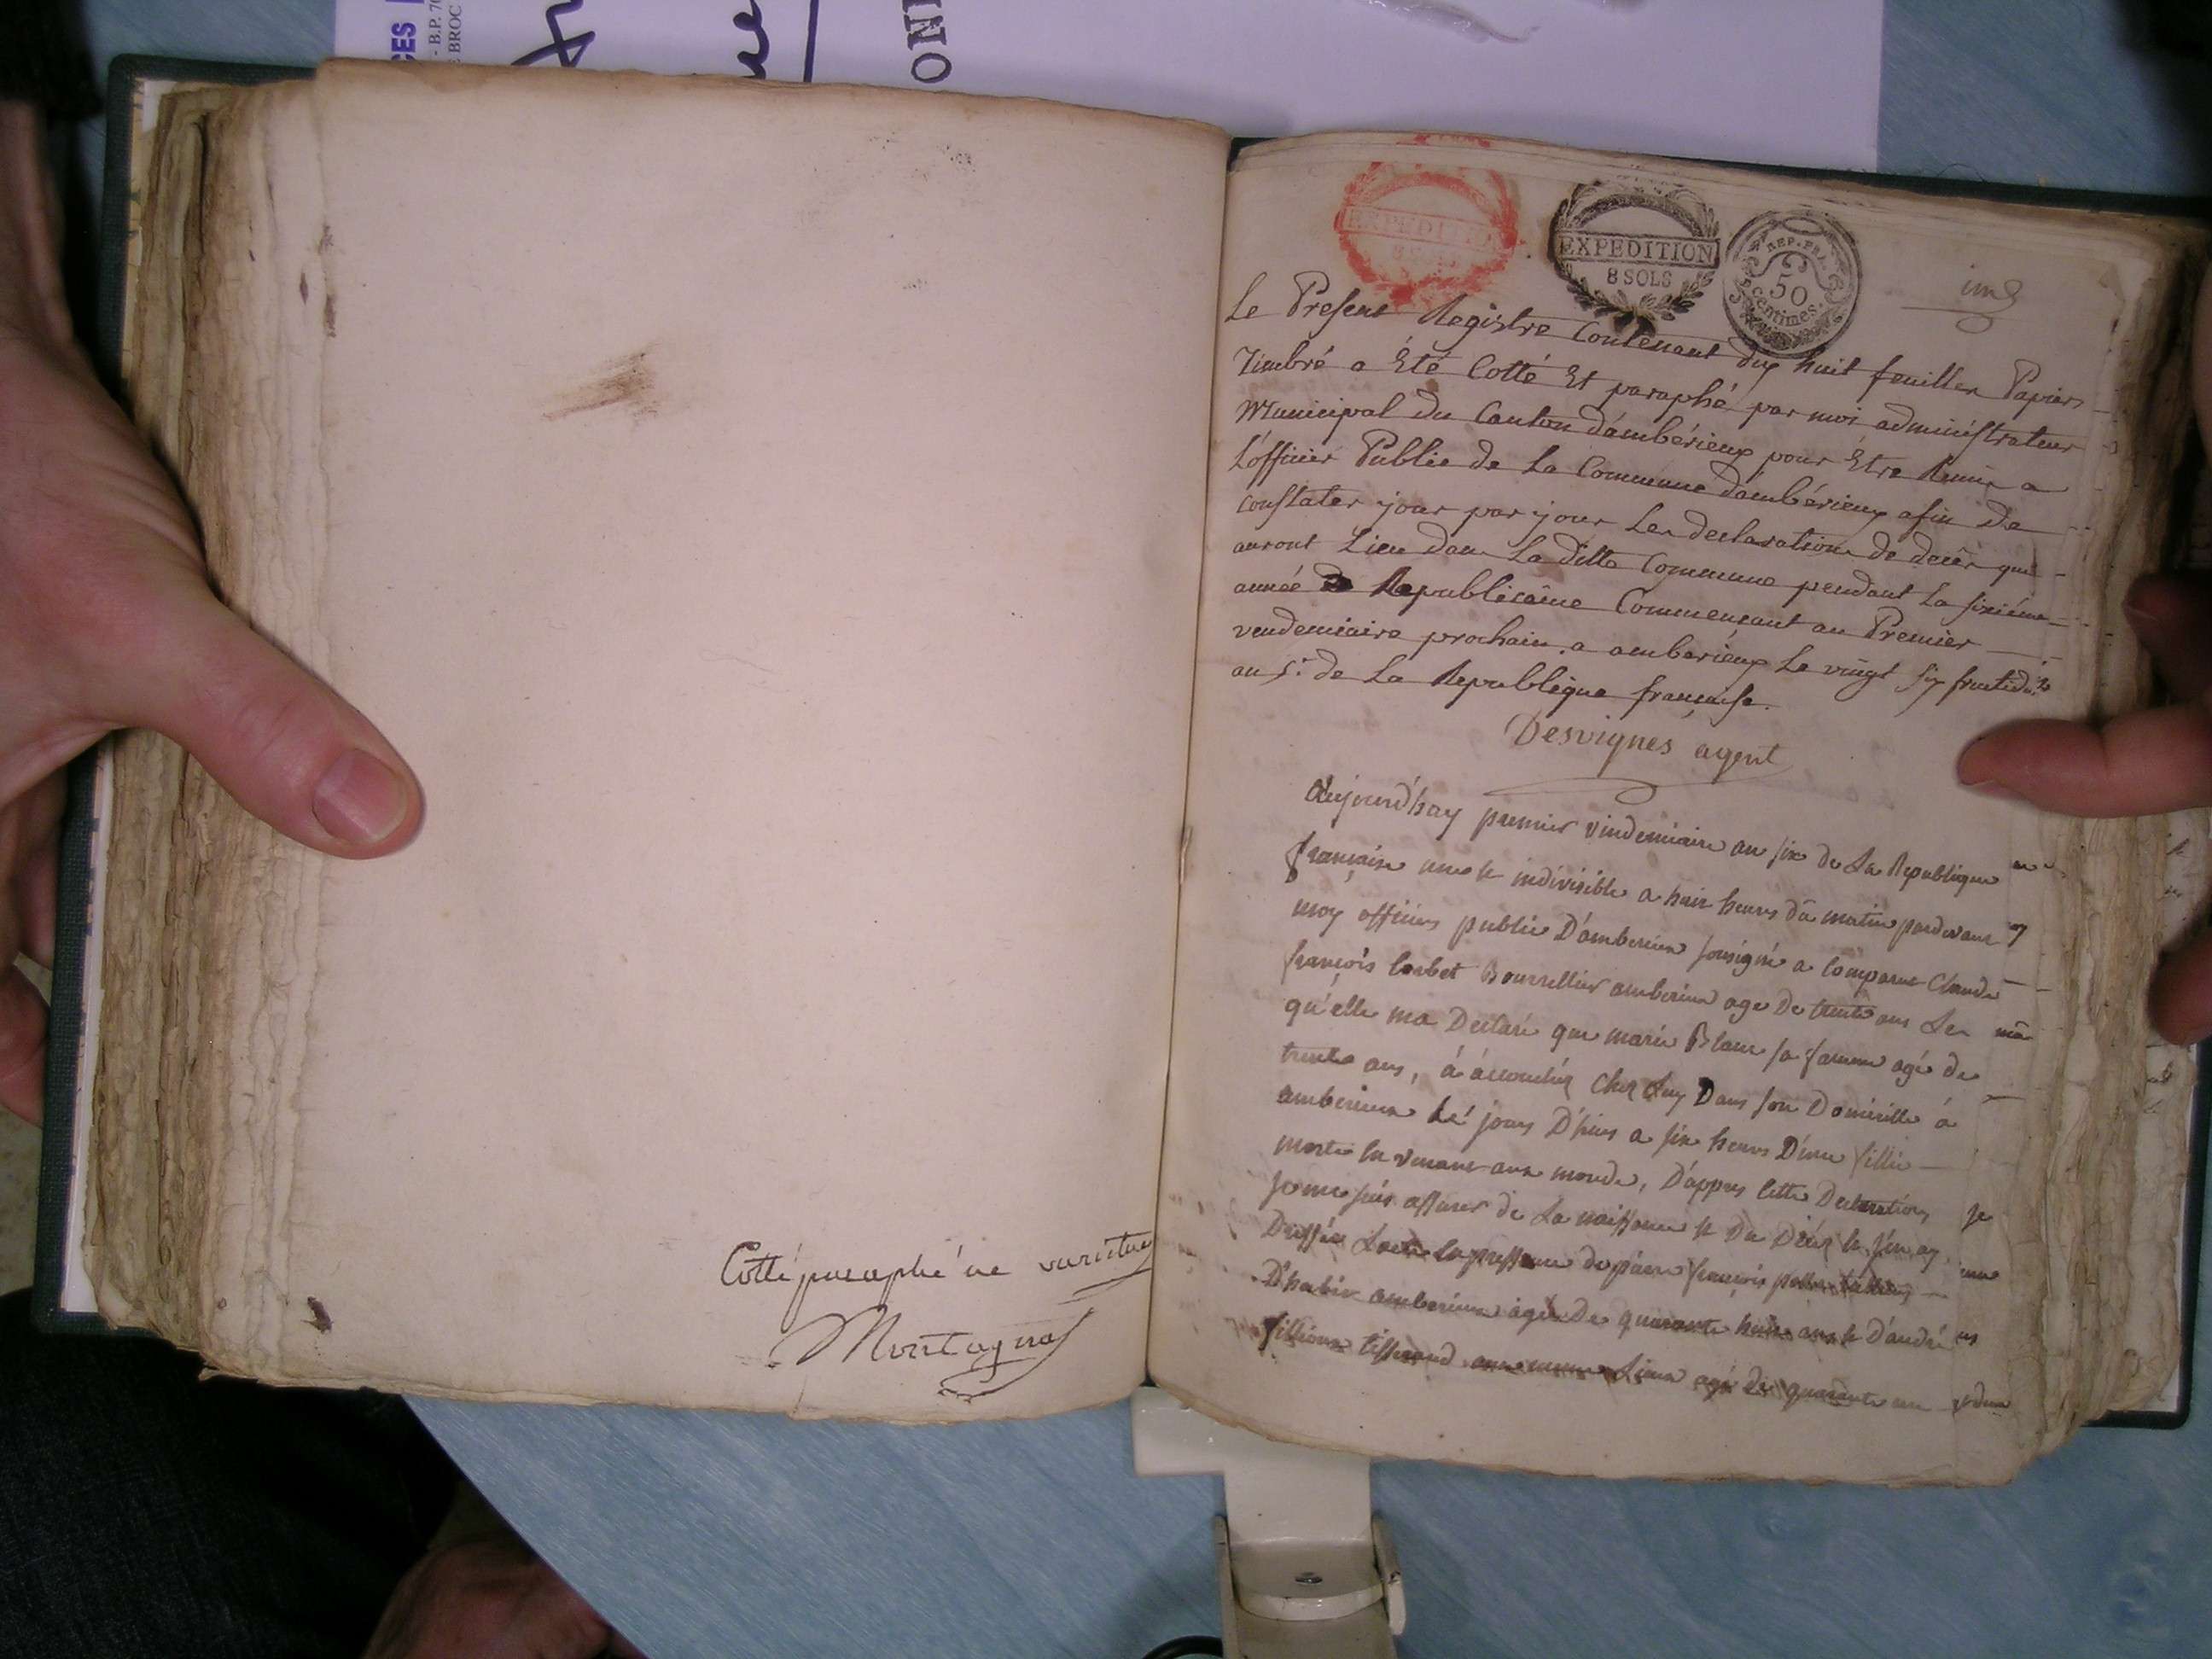 CES
- B.P. 70
BROC
ONI
Cotté paraphé ne varietur
Montagnat
EXPEDITION
8 SOLS
EXPEDITION
8 SOLS
REP. FRA.
50
centimes.
Le Present Registre Contenant dix huit feuilles Papier
Timbré a Été Cotté Et paraphé par moi administrateur
Municipal du Canton d'ambérieux pour Être Remis a
L'officier Public de La Commune d'ambérieux afin de
constater jour par jour Les declarations de décès qui
auront Lieu dans La ditte Commune pendant La sixiéme
année Republicaine Commencant au Premier
vendemiaire prochain. a amberieux Le vingt six fructidor
an 5.e de La Republique francaise.
Desvignes agent
Aujourd'huy premier vindemiaire an six de La Republique
francaise une et indivisible a huit heures du matin pardevant
moy officier public D'amberieux sousigné a Comparu Claude
françois Corbet Bourrellier amberieux age De trente ans Le
qu'elle ma Declaré que marie Blanc sa famme agé de
trente ans, á áccouchéz Chez Luy Dans son Domicille á
amberieux Lé jours D'hier a six heures D'une fillie
morte en venant aux monde, D'appres cette Declaration
je me suis assurer de La naissance et Du Décéz et j'en ay
Dressée Lacte en pressence de pierre françois
D'habit amberieux agé De quarante huit ans et D'andré
fillioux tisserand aux meme Lieux agé de quarante un